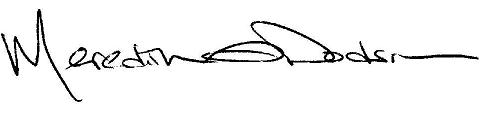 Meredith Dodson